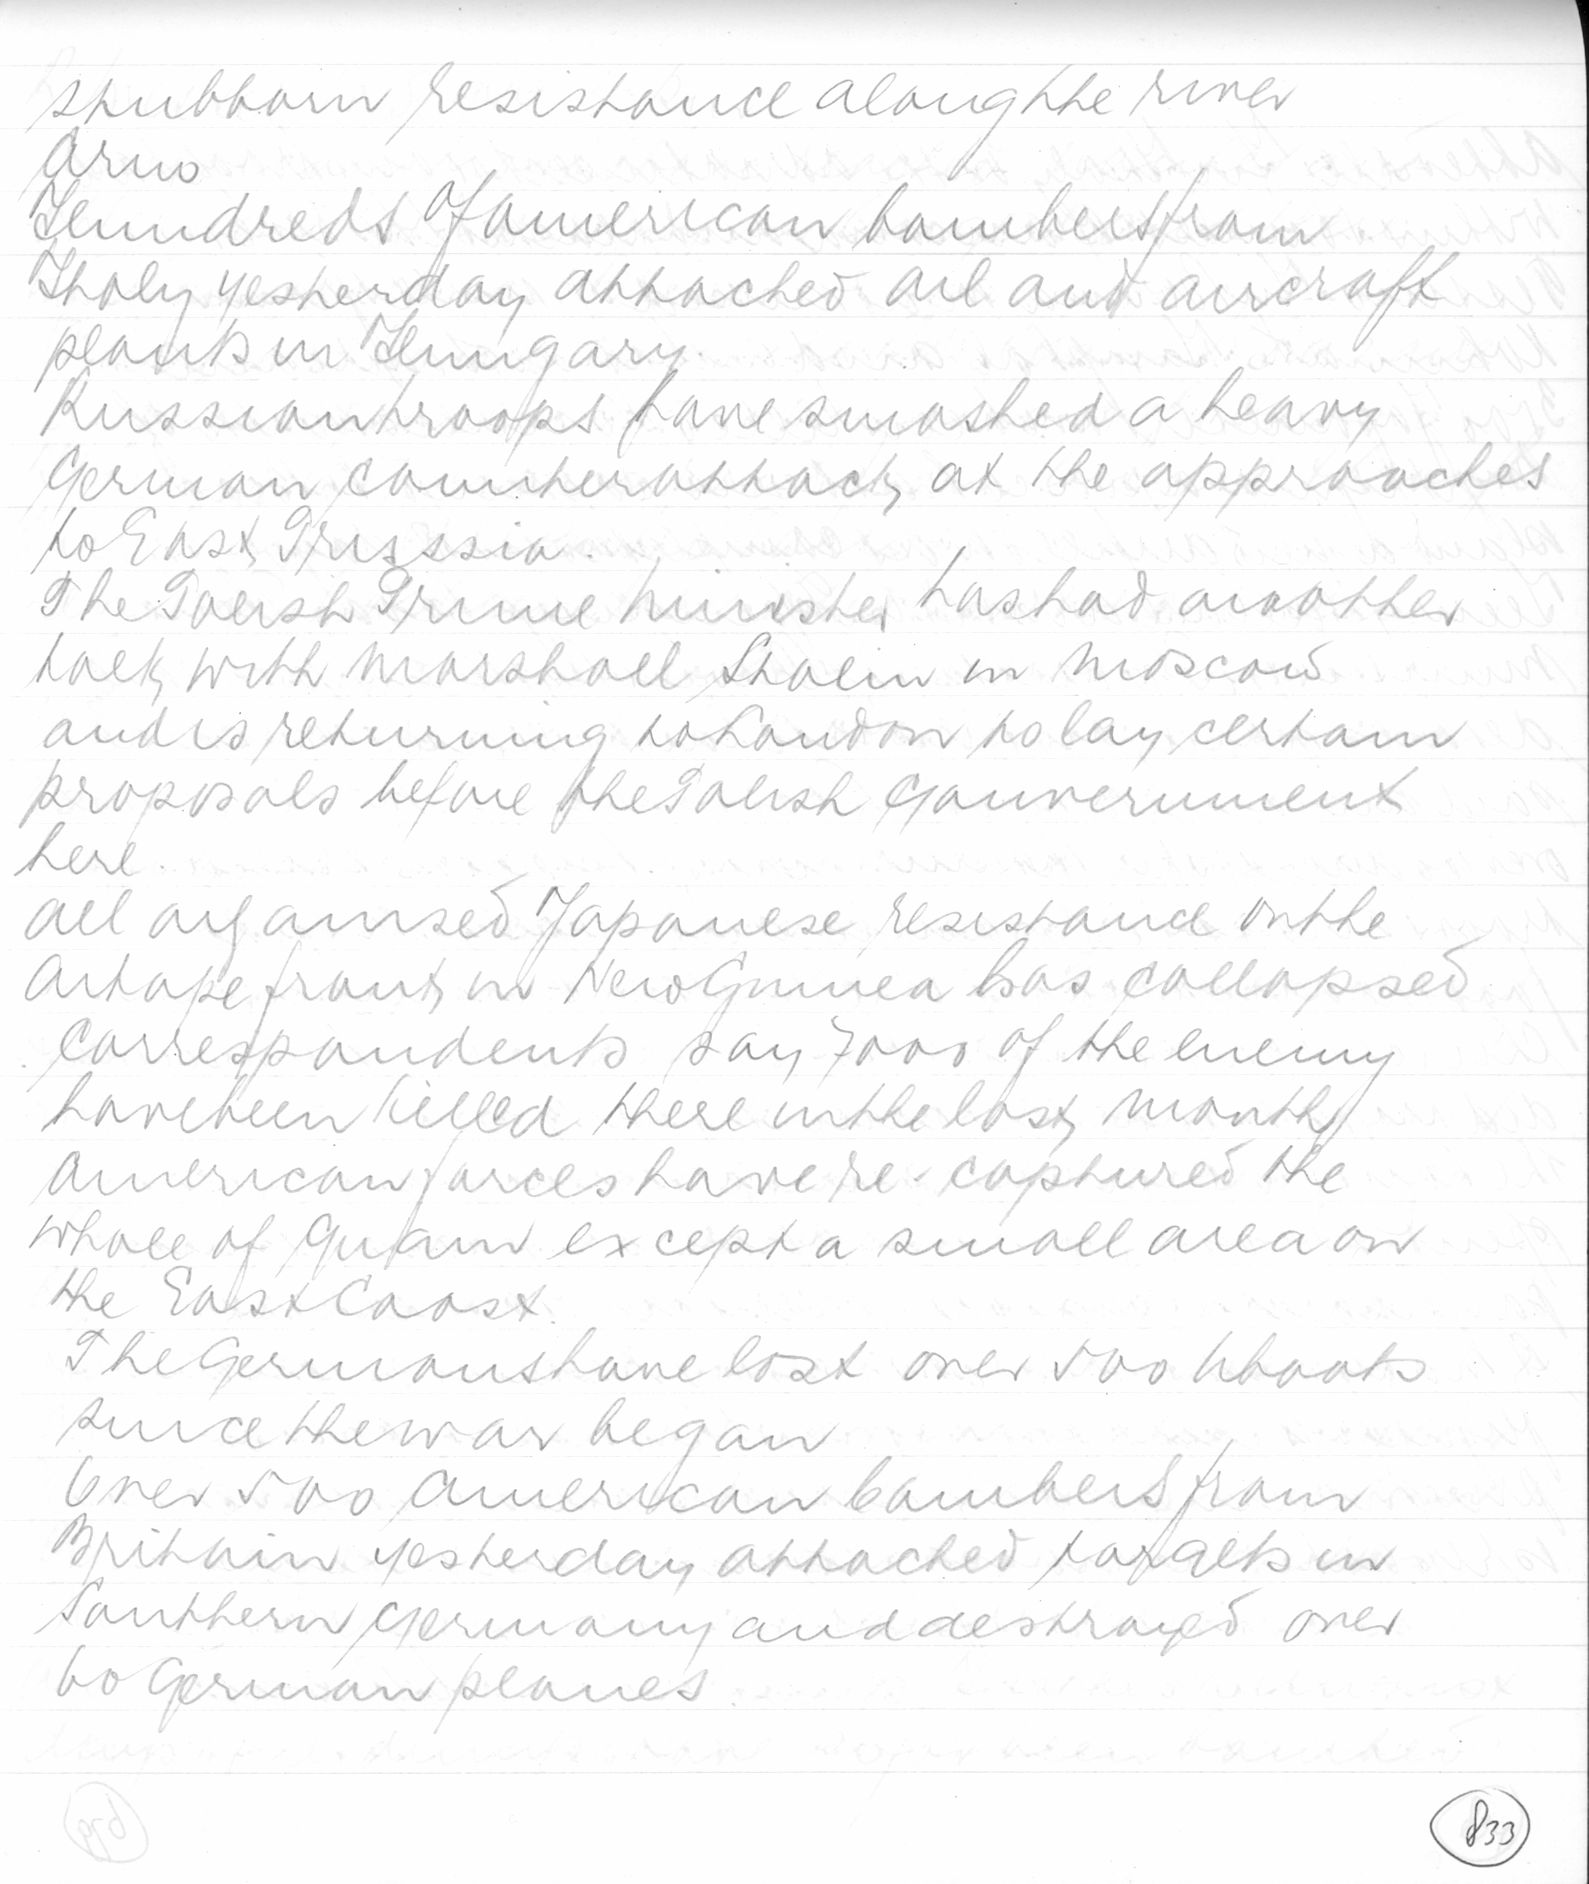 stubborn resistance along the river
Arno
Hundreds of American bombers from
Italy yesterday attacked oil and aircraft
plants in Hungary.
Russian troops have smashed a heavy
German counterattack at the approaches
to East Prussia.
The Polish Prime Minister has had another
talk with Marshall Stalin in Moscow
and is returning to London to lay certain
proposals before the Polish Gouvernment
here.
All organised Japanese resistance on the
Aitape front in New Guinea has collapsed
Correspondents say 7000 of the enemy
have been killed there in the last month
American forces have re-captured the
whole of Guam except a small area on
the East Coast.
The Germans have lost over 500 Uboats
since the war began
Over 500 American bombers from
Britain yesterday attacked targets in
Southern Germany and destroyed over
60 German planes.
833